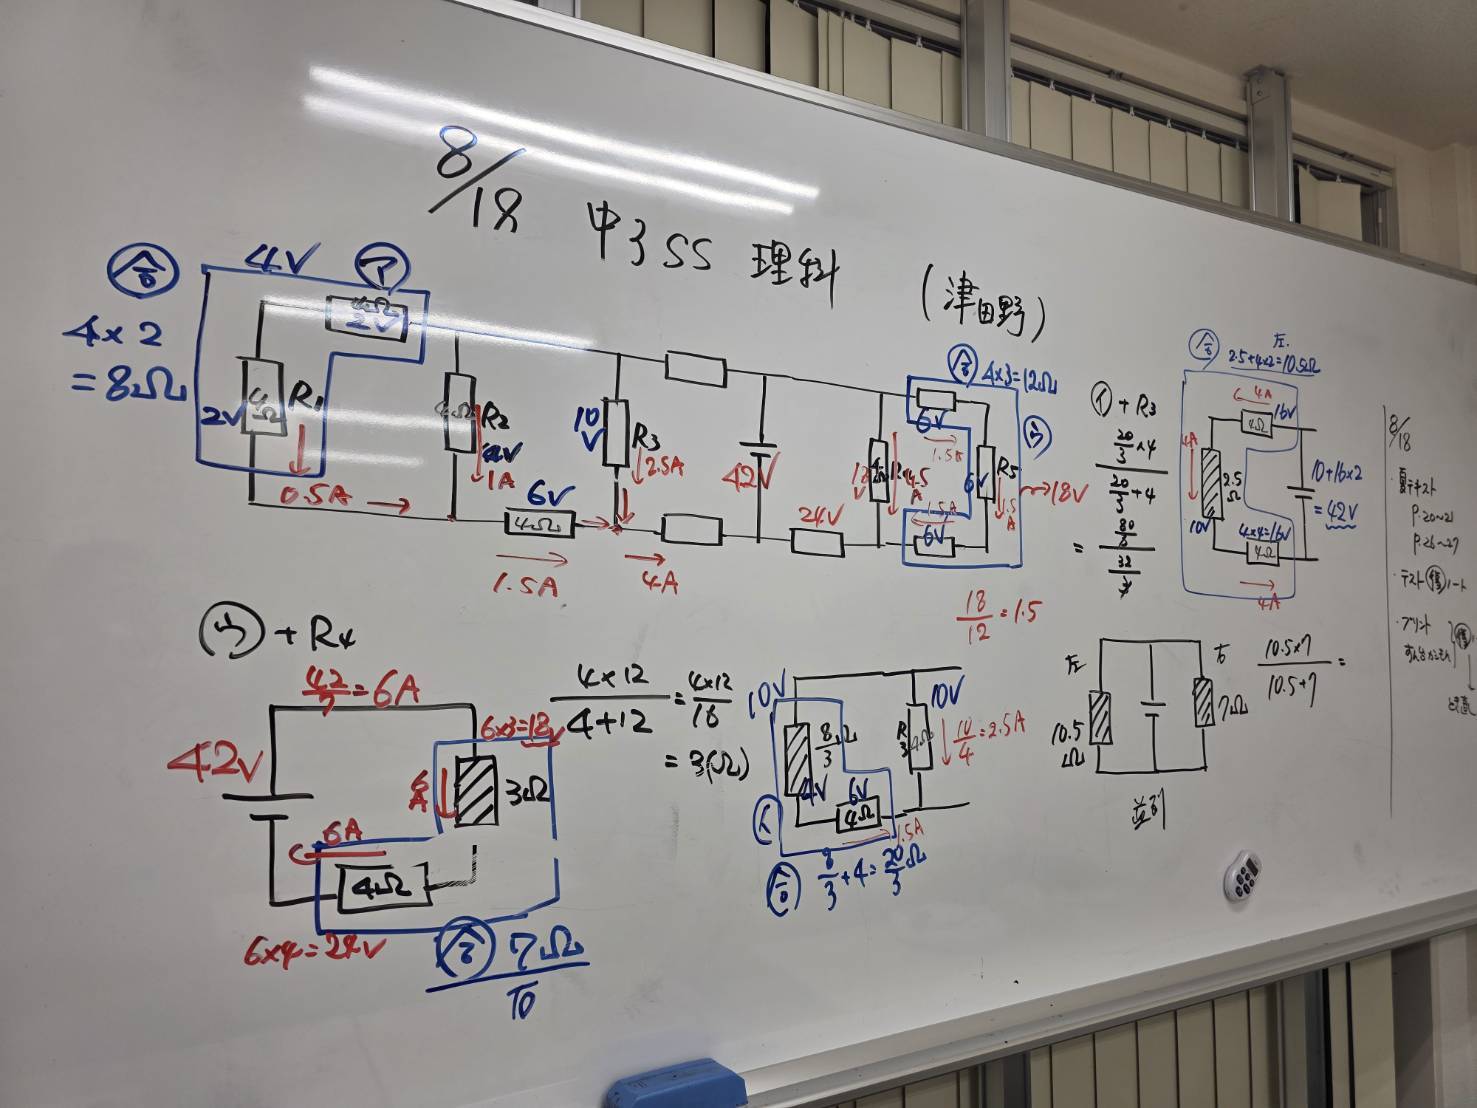 8/18 中3SS 理科 (津田野)
合
4×2
=8Ω
4V
ア
4Ω
2V
4Ω
2V
R₁
0.5A
4Ω
R₂
4V
1A
6V
4Ω
1.5A
10V
R₃
2.5A
4A
42V
24V
合 4×3=12Ω
6V
1.5A
18V
4.5A
6V
R₅
1.5A
1.5A
6V
ウ
→18V
18/12=1.5
イ+R₃
20/3×4
20/3+4
=
80/3
32/3
合
左.
2.5+4×2=10.5Ω
4A
16V
4Ω
4A
2.5Ω
10V
4×4=16V
4Ω
4A
10+16×2
=42V
8/18
・夏テキスト
P.20~21
P.26~27
・テスト
・プリント
ウ+R₄
42/7=6A
42V
6×3=18V
6A
3Ω
6A
4Ω
6×4=24V
合 7Ω
右
4×12/4+12=4×12/16
=3(Ω)
10V
8/3Ω
4V
6V
4Ω
1.5A
イ
合 8/3+4=20/3Ω
10V
R3
4Ω
10/4=2.5A
左
10.5Ω
右
7Ω
並列
10.5×7/10.5+7=